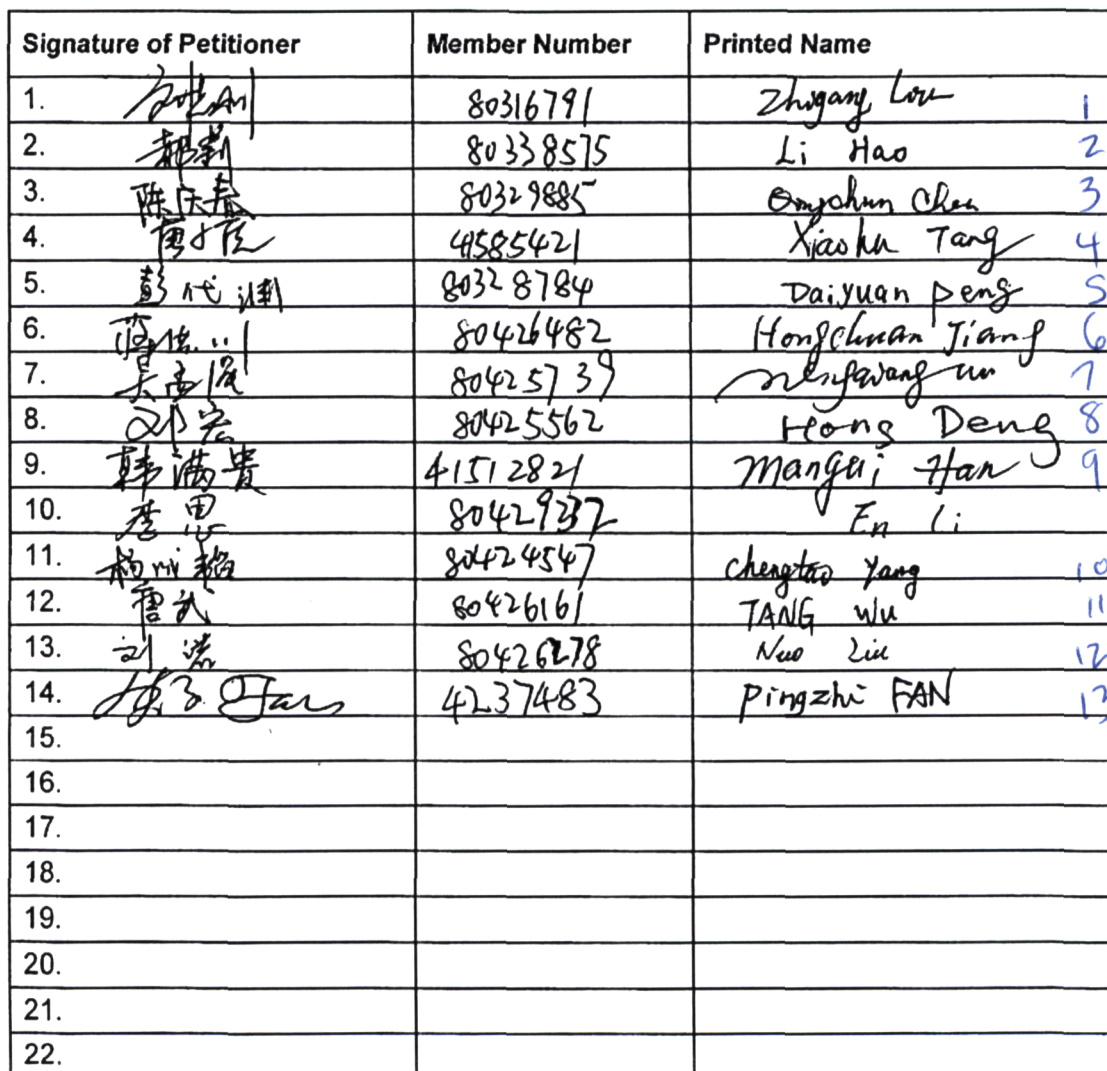 Signature of Petitioner Member Number Printed Name
1. 80316791 Zhigang Lou 1
2. 郝莉 80338575 Li Hao 2
3. 陈庆春 80329885 Chen 3
4. 唐小虎 41585421 Xiaohu Tang 4
5. 彭代渊 80328784 Daiyuan peng 5
6. 80426482 Hongchuan Jiang 6
7. 80425739 7
8. 邓宏 80425562 Hong Deng 8
9. 韩满贵 41512821 Mangui Han 9
10. 李恩 80429237 En Li
11. 杨成韬 80424547 chengtao Yang 10
12. 唐武 80426161 TANG Wu 11
13. 刘诺 80426278 Nuo Liu 12
14. Fan 4237483 pingzhi FAN 13
15.
16.
17.
18.
19.
20.
21.
22.